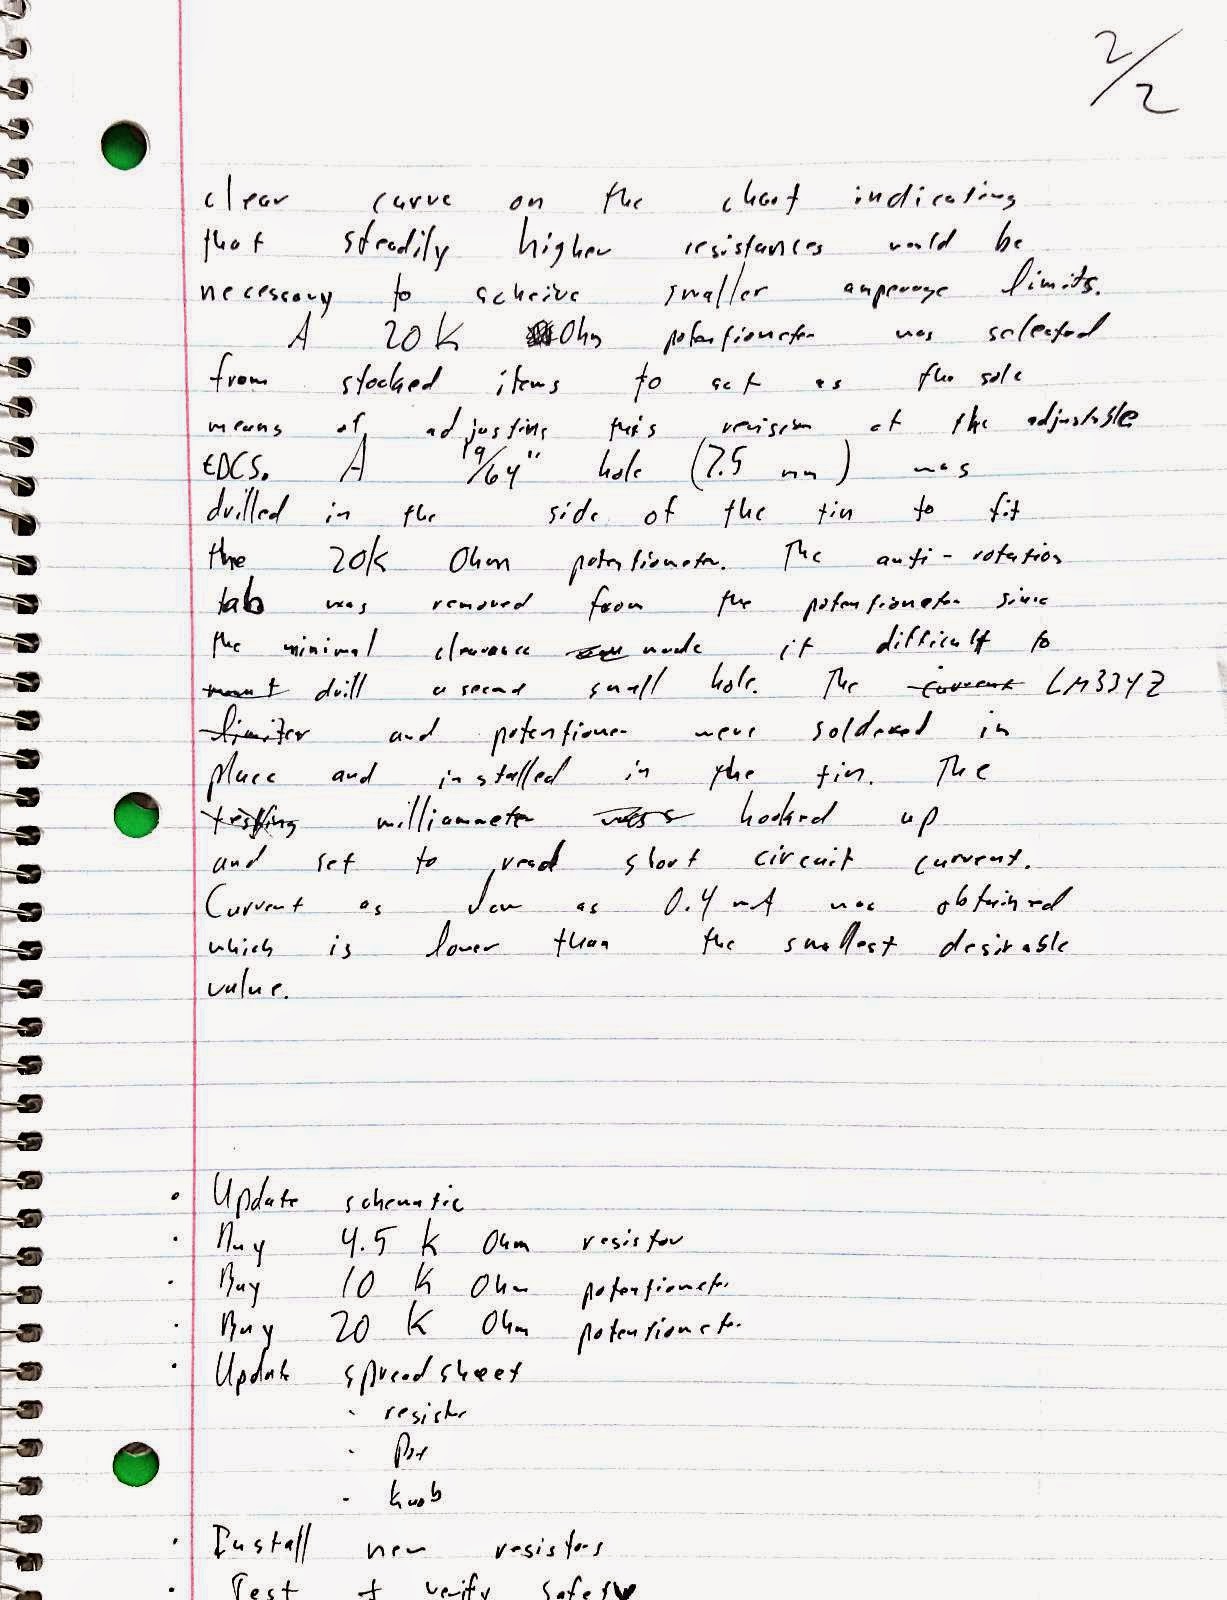 2/2
clear curve on the chart indicating
that steadily higher resistances would be
necessary to acheive smaller amperage limits.
A 20K Ohm potentiometer was selected
from stocked items to act as the sole
means of adjusting this revision of the adjustable
tDCS. A 19/64" hole (7.5 mm) was
drilled in the side of the tin to fit
the 20K Ohm potentiometer. The anti-rotation
tab was removed from the potentiometer since
the minimal clearance made it difficult to
drill a second small hole. The current LM334Z
limiter and potentiometer were soldered in
place and installed in the tin. The
testing milliammeter was hooked up
and set to read short circuit current.
Current as low as 0.4 mA was obtained
which is lower than the smallest desirable
value.
• Update schematic
• Buy 4.5 K Ohm resistor
• Buy 10 K Ohm potentiometer
• Buy 20 K Ohm potentiometer
• Update spreadsheet
• resistor
• Pot
- knob
• Install new resistors
• Test + verify safety